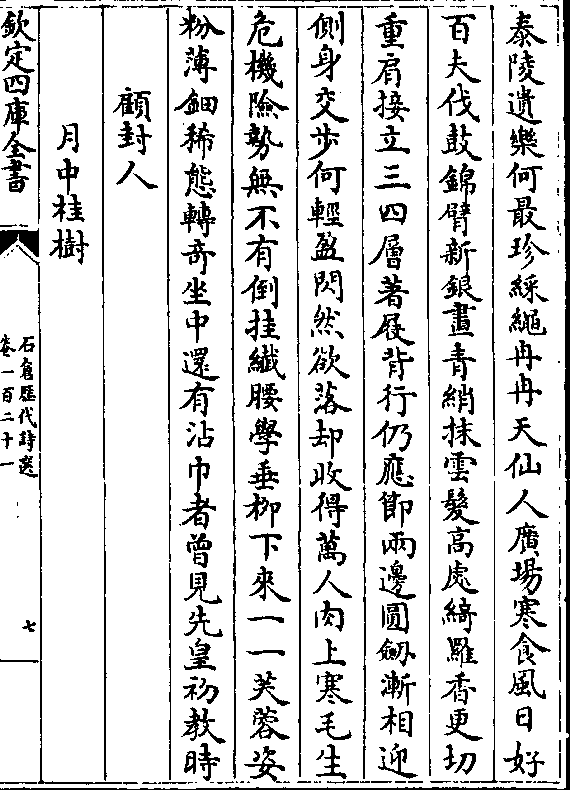 泰陵遺樂何最珍綵繩冉冉天仙人廣場寒食風日好
百夫伐鼓錦臂新銀畫青綃抹雲髮高處綺羅香更切
重肩接立三四層著屐背行仍應節兩邊圓劔漸相迎
側身交步何輕盈閃然欲落却收得萬人肉上寒毛生
危機險勢無不有倒挂纖腰學垂柳下來一一芙蓉姿
粉薄鈿稀態轉奇坐中還有沾巾者曾見先皇初教時
顧封人
月中桂樹
欽定四庫全書
石倉歷代詩選
卷一百二十一
七